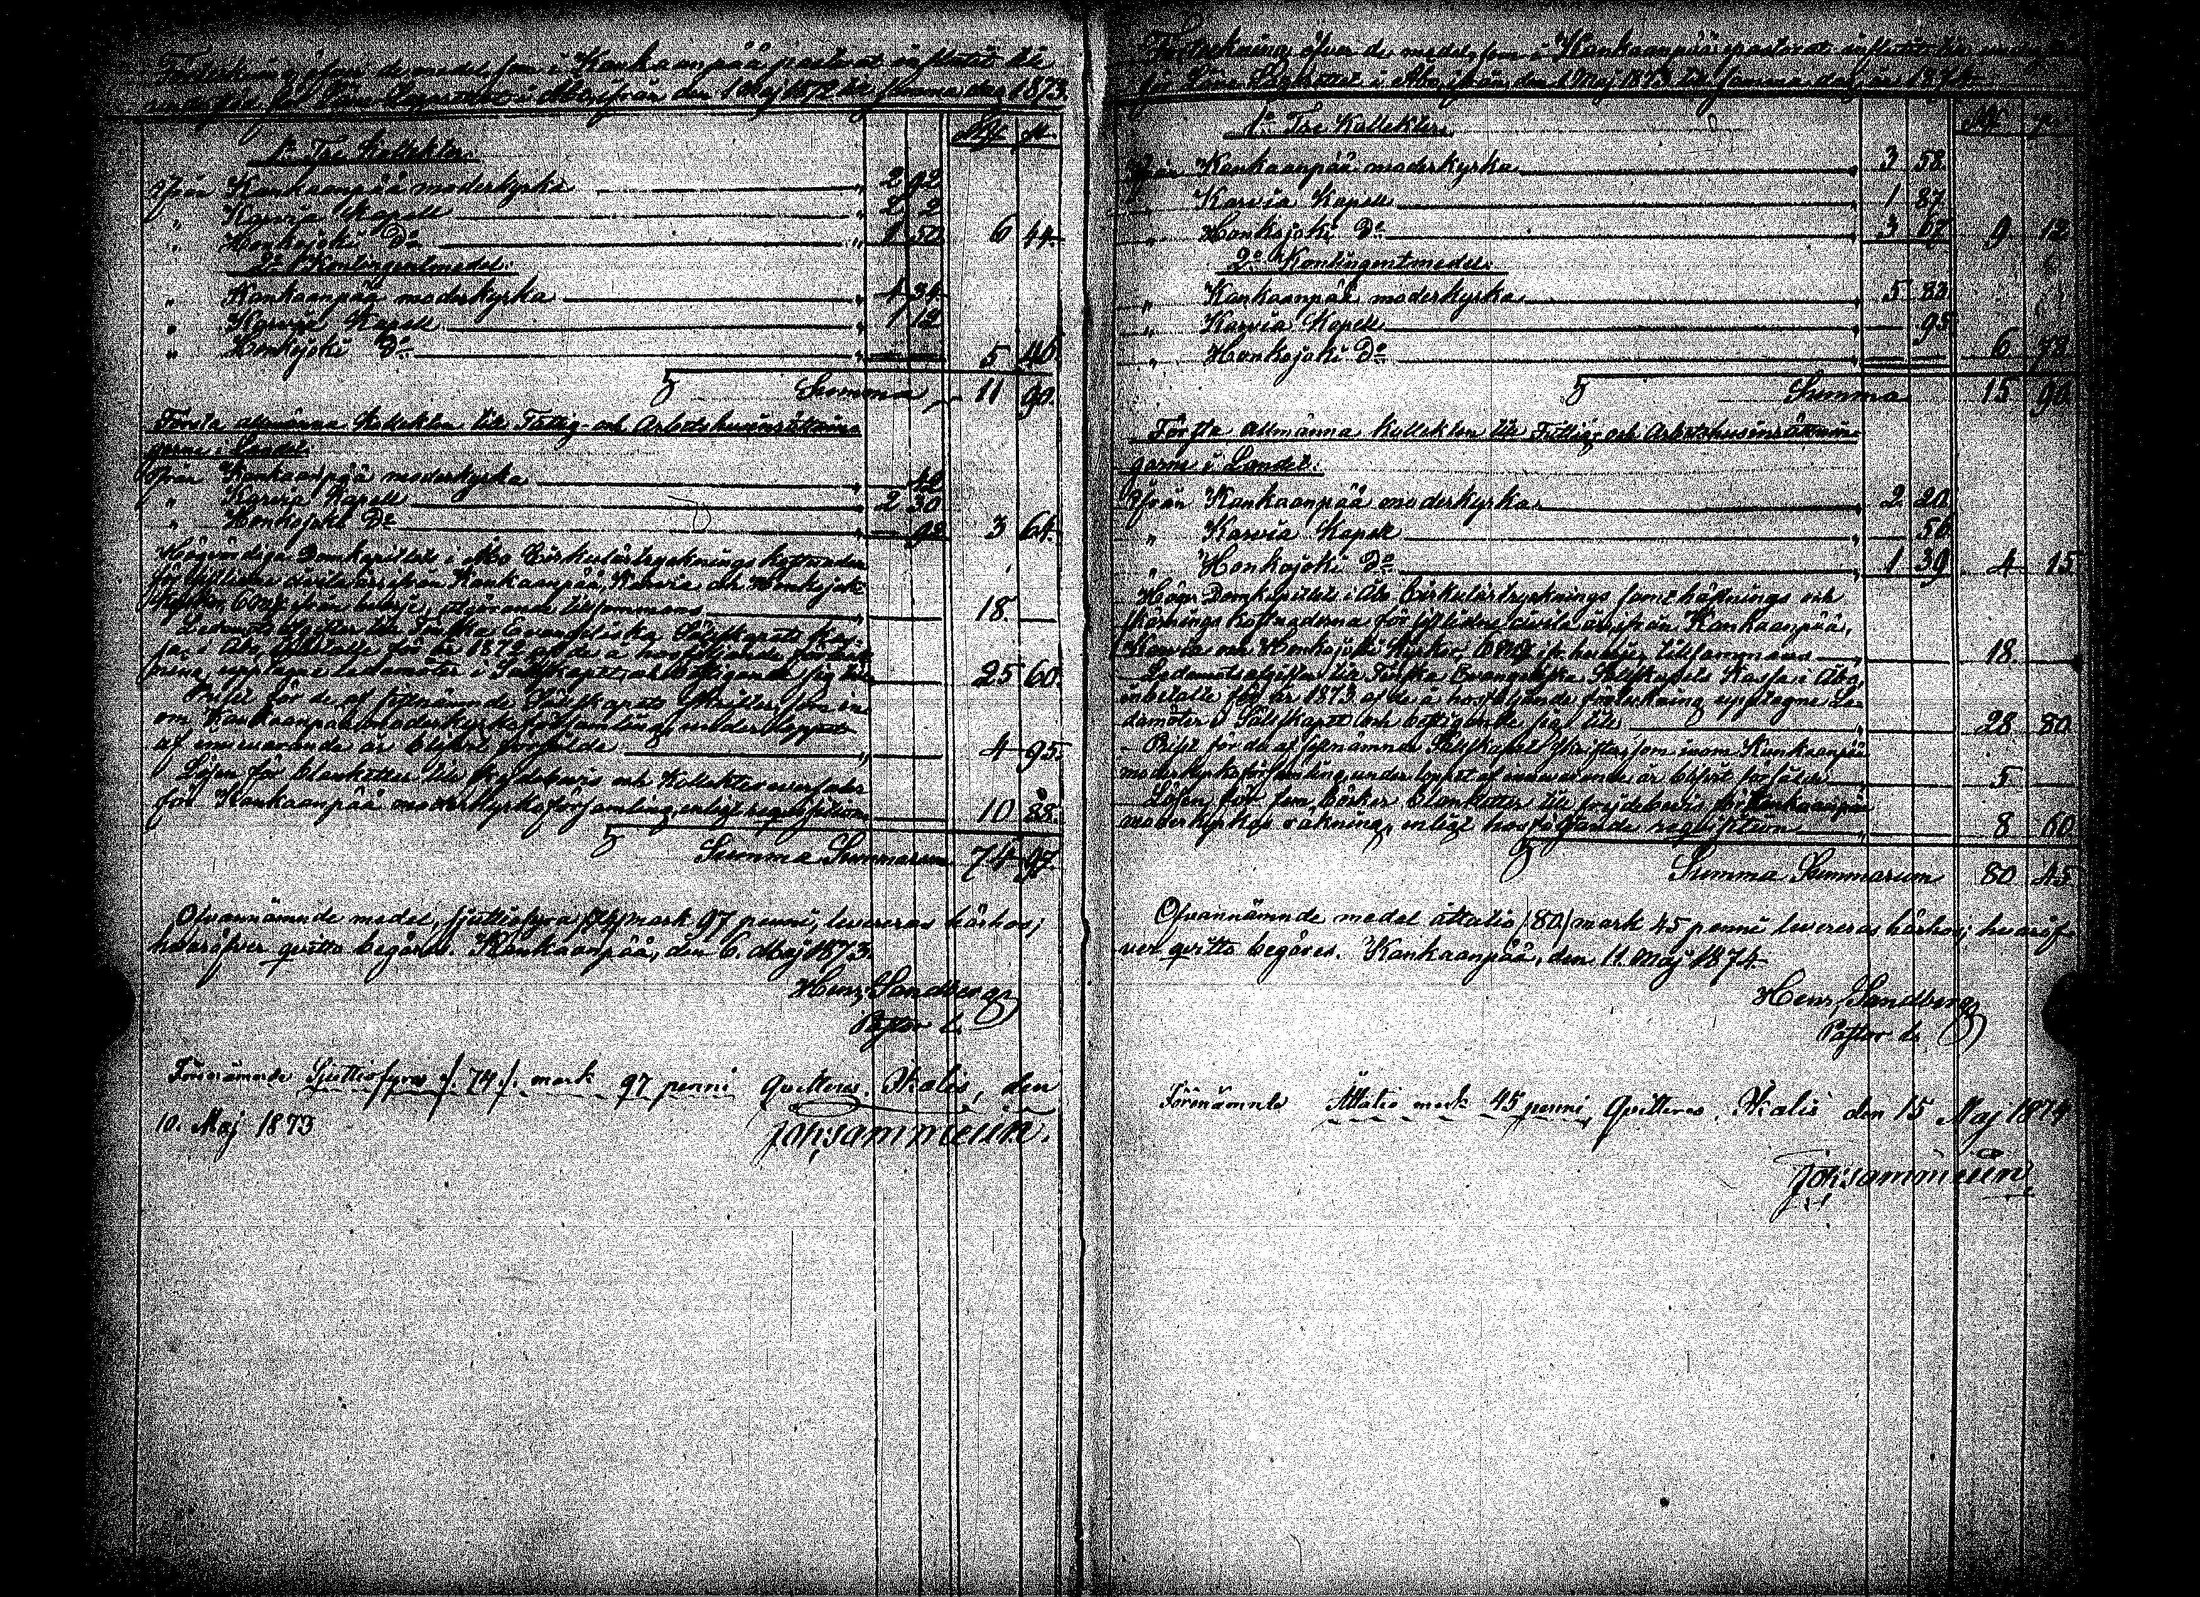 Förteckning öfver de medel, som i Kankaanpää pastorat influtit till
för Läns Lazarettet i Åbo, ifrån den 1 Maj 1872 till samma dag 1873.
1o Tre Kollekter.
Ifrån Kankaanpää moderkyrka " 2 92
" Karvia Kapell " 2 2
" Honkojoki Do " 1 50 6 44
2o Kontingentmedel.
" Kankaanpää moderkyrka " 4 34
" Karvia Kapell " 1 12
" Honkojoki Do " 5 46
Summa 11 90.
Första allmänna Kollekten till Fattig- och Arbetshusinrättnin-
garne i Landet.
Ifrån Kankaanpää moderkyrka " 42
" Karvia Kapell " 2 30
" Honkojoki Do " 92 3 64.
Högvördiga Domkapitlet i Åbo Cirkulärtrycknings kostnader
för Kankaanpää, Karvia och Honkojoki
Kyrkor, 6 ifrån hvarje, utgörande tillsammans 18.
Ledamots afgifter till Finska Evangeliska Sällskapets Kas-
sa i Åbo, inbetalte för år 1872 af de å hosföljande förteck-
ning upptagne Ledamöter i Sällskapet och bestigande sig till 25 60.
Priset för de af sistnämnde Sällskapets Skrifter, som in-
om Kankaanpää moderkyrkoförsamling, under loppet
af innevarande år blifvit försålde 4 95.
Lösen för blanketter till frejdebevis och Kollektreverser
för Kankaanpää moderkyrkoförsamling, enligt requisition 10 88.
Summa Summarum 74 97.
Ofvannämnde medel, sjuttiofyra /74/ mark 97 penni, levereras härhos;
hvaröfver qvitto begäres. Kankaanpää, den 6. Maj 1873.
Henr. Sandberg
Pastor
Förenämnde Sjuttiofyra /. 74 ./. mark 97 penni qvitteras. Ikalis, den
10. Maj 1873
Förteckning öfver de medel, som i Kankaanpää pastorat influtit till
för Läns Lazarettet i Åbo, ifrån den 1 Maj 1873 till samma dag år 1874.
1o Tre Kollekter.
Ifrån Kankaanpää moderkyrka " 3 58.
" Karvia Kapell " 1 87
" Honkojoki Do " 3 67 9 12
2o Kontingentmedel.
" Kankaanpää moderkyrka " 5 83
" Karvia Kapell " 95
" Honkojoki Do " 6 78
Summa 15 90.
Första allmänna Kollekten till Fattig- och Arbetshusinrättnin-
garne i Landet.
Ifrån Kankaanpää moderkyrka " 2 20
" Karvia Kapell " 56
" Honkojoki Do " 1 39 4 15
Högv. Domkapitlet i Åbo Cirkulärtrycknings samt häftnings och
skärnings kostnaderna för Kankaanpää,
Karvia och Honkojoki Kyrkor, 6 fr. hvarje, tillsammans 18.
Ledamotsafgifter till Finska Evangeliska Sällskapets Kassa i Åbo,
inbetalte för år 1873 af de å hosföljande förteckning upptagne Le-
damöter i Sällskapet och bestigande sig till 28 80
Priset för de af sistnämnde Sällskapets Skrifter, som inom Kankaanpää
moderkyrkoförsamling under loppet af innevarande år blifvit försålde 5
Lösen för fem böcker blanketter till frejdebevis för Kankaanpää
moderkyrkas räkning, enligt hosföljande requisition 8 60
Summa Summarum 80 45
Ofvannämnde medel åttatio /80/ mark 45 penni levereras härhos; hvaröf-
ver qvitto begäres. Kankaanpää, den 11. Maj 1874.
Henr. Sandberg
Pastor
Förenämnde Åttatio mark 45 penni, Qvitteras. Ikalis den 15 Maj 1874